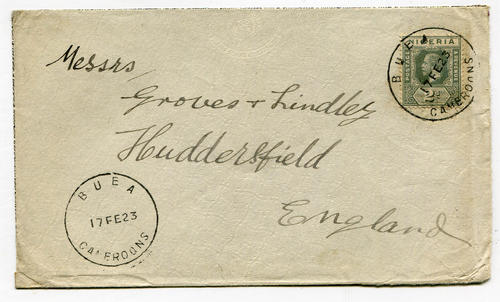 Messrs
Groves + Lindley
Huddersfield
England
NIGERIA
POSTAGE
& REVENUE
2d
BUEA
17FE23
CAMEROONS
BUEA
17FE23
CAMEROONS